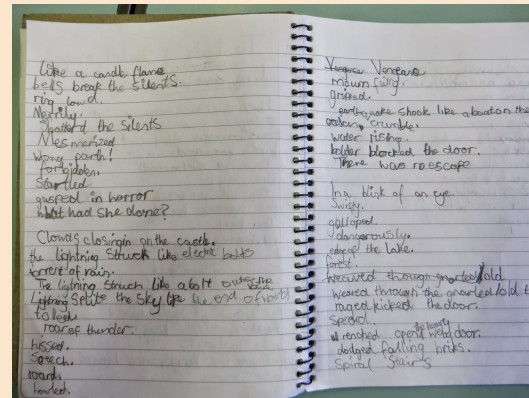 like a candle flame
bells break the silents.
ring loud.
Merrily.
Shatterd the silents
Mesmerized
wrong parth!
forbidden.
Startled
gasped in horror
What had she done?
Clowds closing in on the castle.
the lightning struck like electric bolts
torrent of rain.
The lightning struck like a bolt
Lightning Splite the sky like the end of world
tolled.
roar of thunder.
hissed.
Screech.
roard.
howled.
Vengeance
mournfully.
grissed.
earthquake shook like a boat on the
ocean, crumble.
water rising.
bolder blockled the door.
There was no escape
In a blink of an eye.
Swifty.
galloped.
dangerously.
edge of the lake.
forist
weaved though gnarled/old
weaved through the gnarled/old t
raged kicked the door.
Speed.
wrenched open the heavy door.
dodged falling briks.
Spiral Stairs